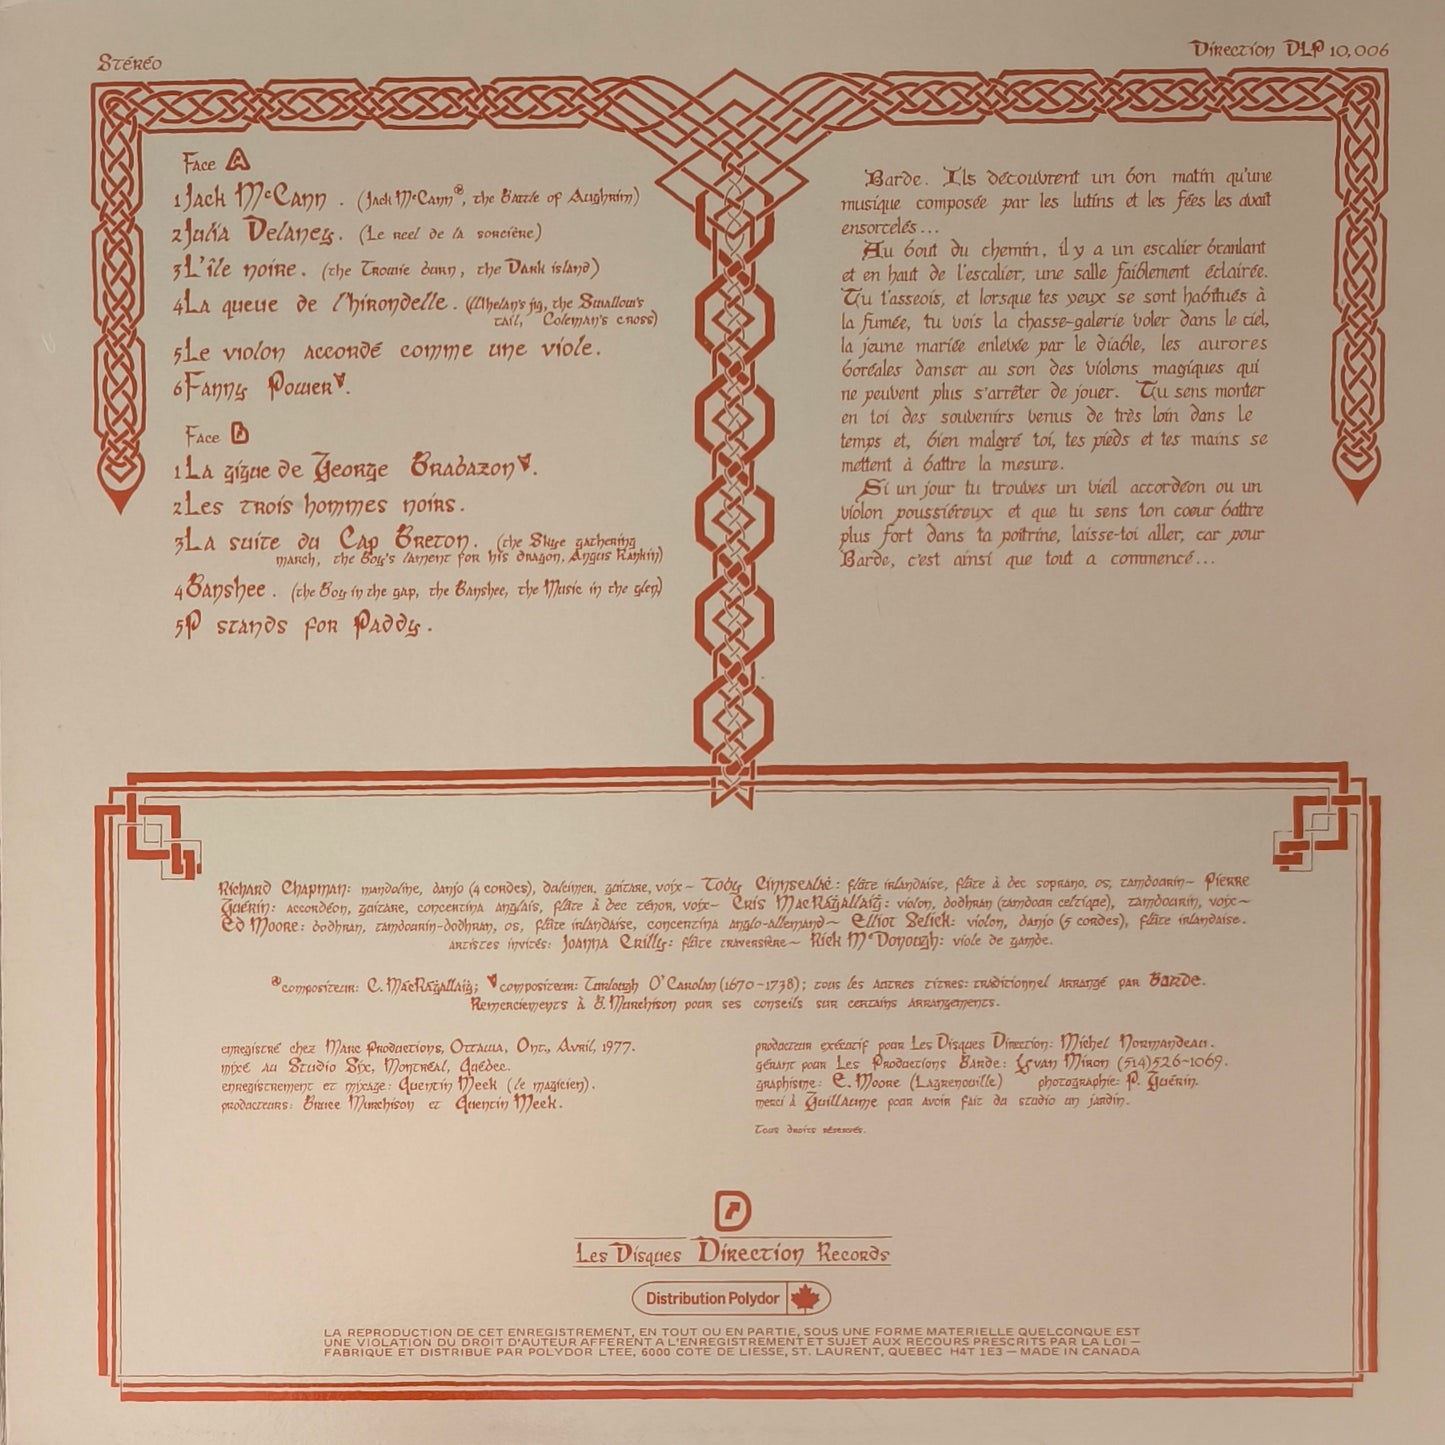 Stéréo
Direction DLP 10,006
Face A
1 Jack McCann . (Jack McCann®, the Battle of Aughrim)
2 Julia Delaney. (Le reel de la sorcière)
3 L'île noire. (the Trowie burn, the Dark island)
4 La queue de l'hirondelle. (Whelan's jig, the Swallow's
tail, Coleman's cross)
5 Le violon accordé comme une viole.
6 Fanny Power▼.
Face B
1 La gigue de George Brabazon▼.
2 Les trois hommes noirs.
3 La suite du Cap Breton. (the Skye gathering
march, the Boy's lament for his dragon, Angus Rankin)
4 Banshee. (the Boy in the gap, the Banshee, the Music in the glen)
5 P stands for Paddy.
Barde. Ils découvrent un bon matin qu'une
musique composée par les lutins et les fées les avait
ensorcelés...
Au bout du chemin, il y a un escalier branlant
et en haut de l'escalier, une salle faiblement éclairée.
Tu t'asseois, et lorsque tes yeux se sont habitués à
la fumée, tu vois la chasse-galerie voler dans le ciel,
la jeune mariée enlevée par le diable, les aurores
boréales danser au son des violons magiques qui
ne peuvent plus s'arrêter de jouer. Tu sens monter
en toi des souvenirs venus de très loin dans le
temps et, bien malgré toi, tes pieds et tes mains se
mettent à battre la mesure.
Si un jour tu trouves un vieil accordéon ou un
violon poussiéreux et que tu sens ton coeur battre
plus fort dans ta poitrine, laisse-toi aller, car pour
Barde, c'est ainsi que tout a commencé...
Richard Chapman: mandoline, banjo (4 cordes), dulcimer, guitare, voix~ Toby Cinnsealač: flûte irlandaise, flûte à bec soprano, os, tambourin~ Pierre
Guérin: accordéon, guitare, concertina anglais, flûte à bec ténor, voix~ Cris MacRághallaigh: violon, bodhran (tambour celtique), tambourin, voix~
Ed Moore: bodhran, tambourin-bodhran, os, flûte irlandaise, concertina anglo-allemand~ Elliot Selick: violon, banjo (5 cordes), flûte irlandaise.
artistes invités: Joanna Crilly: flûte traversière~ Rick McDonough: viole de gambe.
®compositeur: C. MacRághallaigh; ▼compositeur: Turlough O'Carolan (1670-1738); tous les autres titres: traditionnel arrangé par Barde.
Remerciements à B. Murchison pour ses conseils sur certains arrangements.
enregistré chez Marc Productions, Ottawa, Ont., Avril, 1977.
mixé au Studio Six, Montréal, Québec.
enregistrement et mixage: Quentin Meek (le magicien).
producteurs: Bruce Murchison et Quentin Meek.
producteur exécutif pour Les Disques Direction: Michel Normandeau.
gérant pour Les Productions Barde: Yvan Miron (514)526-1069.
graphisme: E. Moore (Lagrenouille) photographie: P. Guérin.
merci à Guillaume pour avoir fait du studio un jardin.
Tous droits réservés.
Les Disques Direction Records
Distribution Polydor
LA REPRODUCTION DE CET ENREGISTREMENT, EN TOUT OU EN PARTIE, SOUS UNE FORME MATERIELLE QUELCONQUE EST
UNE VIOLATION DU DROIT D'AUTEUR AFFERENT A L'ENREGISTREMENT ET SUJET AUX RECOURS PRESCRITS PAR LA LOI —
FABRIQUE ET DISTRIBUE PAR POLYDOR LTEE, 6000 COTE DE LIESSE, ST. LAURENT, QUEBEC H4T 1E3 — MADE IN CANADA